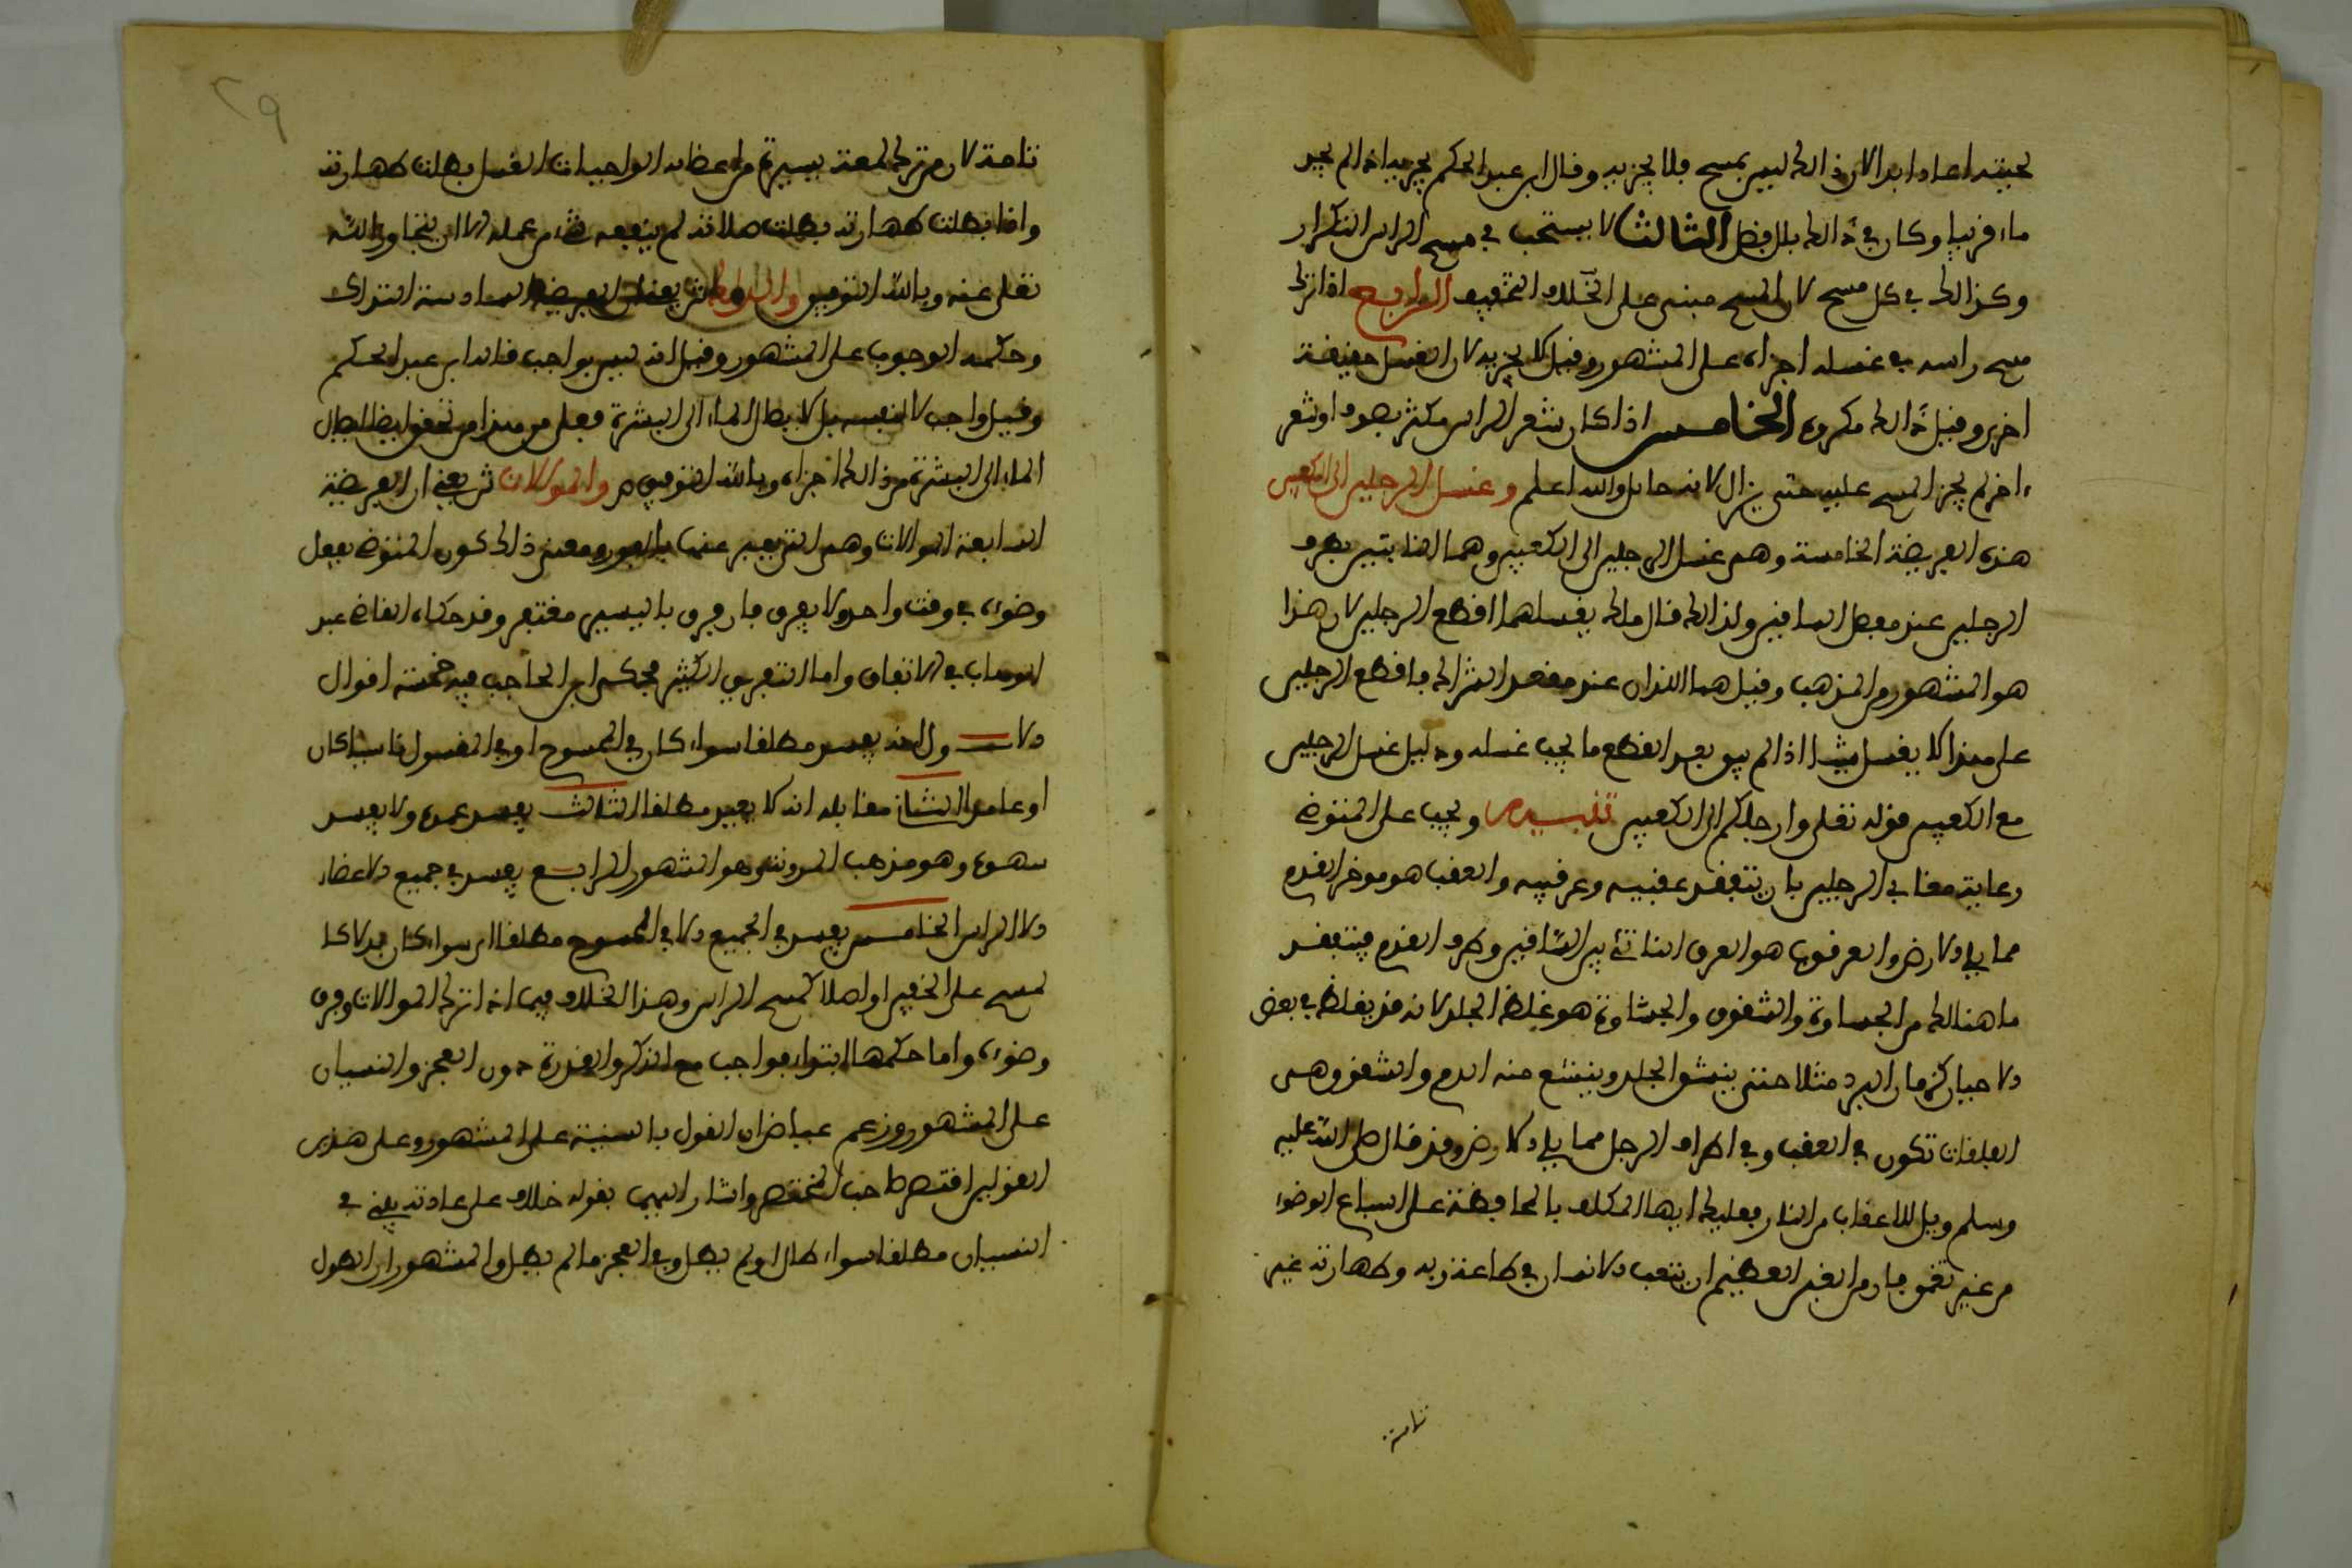 لحيته اعاد ابدا لان ذالك ليس بمسح فلا يجزيه وقال ابن عبد الحكم يجزيه اذا لم يجد
ماء قريبا وكان في ذالك بلل فضل الثالث لا يستحب في مسح الراس التكرار
وكذالك في كل مسح لان المسح مبني على التخفيف الرابع اذا ترك
مسح راسه في غسله اجزاه على المشهور وقيل لا يجزيه لان الغسل حقيقة
اخرى وقيل ذالك مكروه الخامس اذا كان شعر الراس مكثر بصوف او شعر
اخر لم يجز المسح عليه حتى يزال لانه حائل والله اعلم وغسل الرجلين الى الكعبين
هذه الفريضة الخامسة وهي غسل الرجلين الى الكعبين وهما الناتيين بطرف
الرجلين عند مفصل الساقين ولذالك قال مالك يغسلهما اقطع الرجلين لان هذا
هو المشهور من المذهب وقيل هما اللذان عند معقد الشراك فاقطع الرجلين
على هذا لا يغسل شيئا اذا لم يبق بعد القطع ما يجب غسله ودليل غسل الرجلين
مع الكعبين قوله تعلى وارجلكم الى الكعبين تنبيه ويجب على المتوضئ
رعايته هنا في الرجلين بان يتفقد عقبيه وعرقبيه والعقب هو موخر القدم
مما يلي الارض والعرقوب هو العرق الناتئ بين الساقين وطرف القدم فيتفقد
ما هنالك من الجساوة والشقوق والجساوة هو غلظ الجلد لانه قد يغلظ في بعض
الاحيان كزمان البرد مثلا حتى ينشق الجلد وينبع منه الدم والشقوق وهي
الفلقات تكون في العقب وفي اطراف الرجل مما يلي الارض وقد قال صلى الله عليه
وسلم ويل للاعقاب من النار فعليك ايها المكلف بالمحافظة على اسباغ الوضوء
من غير تعمق فان من الغبن العظيم ان يتعب الانسان في طاعة ربه وطهارته غير
تامة
تامة لان من ترك لمعة يسيرة من اعضائه الواجبات الغسل بطلت طهارته
واذا بطلت طهارته بطلت صلاته لم ينفعه شيء من عمله الا ان يتجاوز الله
تعلى عنه وبالله التوفيق والدلك ش يعني ان الفريضة السادسة التدلك
وحكمه الوجوب على المشهور وقيل انه ليس بواجب قاله ابن عبد الحكم
وقيل واجب لا لنفسه بل لايصال الماء الى البشرة فعلى هذا من تحقق ايصال
الماء الى البشرة من ذالك اجزاه وبالله التوفيق ص والموالات ش يعني ان الفريضة
السابعة الموالات وهي التي يعبر عنها بالفور ومعنى ذالك كون المتوضئ يفعل
وضوءه في وقت واحد ولا يفرق فان فرق باليسير مغتفر وقد حكاه القاضي عبد
الوهاب في الاتفاق واما التفريق الكثير فحكى ابن الحاجب فيه خمسة اقوال
الاول انه يفسد مطلقا سواء كان في الممسوح او في المغسول ناسيا كان
او عامدا الثاني مقابله انه لا يفسد مطلقا الثالث يفسد عمده ولا يفسد
سهوه وهو مذهب المدونة وهو المشهور الرابع يفسد في جميع الاعضاء
الا الراس الخامس يفسد في الجميع الا في الممسوح مطلقا اي سواء كان بدلا كا
لمسح على الخفين او اصلا كمسح الراس وهذا الخلاف فيما اذا ترك الموالات وفرق
وضوءه واما حكمها ابتداء فواجب مع الذكر والقدرة دون العجز والنسيان
على المشهور وزعم عياض ان القول بالسنية على المشهور وعلى هذين
القولين اقتصر صاحب المختصر واشار اليهما بقوله خلاف على عادته يبني في
النسيان مطلقا سواء طال او لم يطل وفي العجز ما لم يطل والمشهور ان الطول